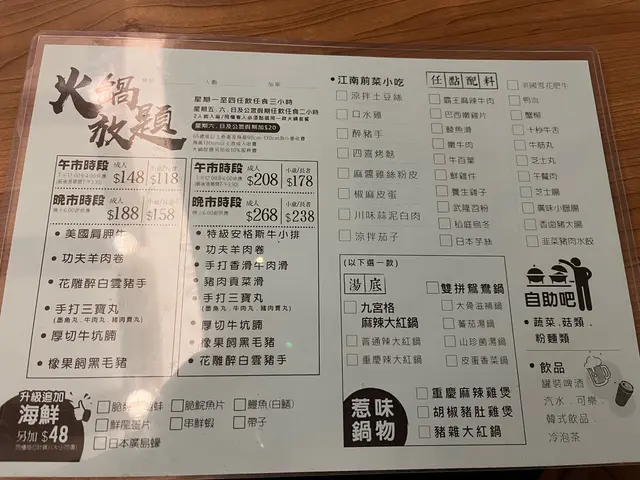 火鍋放題
人數
星期一至四任飲任食三小時
星期五, 六, 日及公眾假期任飲任食二小時
星期六, 日及公眾假期加$20
午市時段
成人 $148
$118
晚市時段
$188
$158
• 美國肩胛牛
• 功夫羊肉卷
• 花雕醉白雲豬手
• 手打三寶丸
(墨魚丸, 牛肉丸, 豬肉貢丸)
• 厚切牛坑腩
• 橡果飼黑毛豬
午市時段
成人 $208
小童/長者 $178
晚市時段
成人 $268
小童/長者 $238
• 特級安格斯牛小排
• 功夫羊肉卷
• 手打香滑牛肉滑
• 豬肉貢菜滑
• 手打三寶丸
(墨魚丸, 牛肉丸, 豬肉貢丸)
• 厚切牛坑腩
• 橡果飼黑毛豬
• 花雕醉白雲豬手
升級追加
海鮮
另加 $48
脆脘魚片
鱔魚(白鱔)
串鮮蝦
帶子
日本廣島蠔
• 江南前菜小吃
涼拌土豆絲
口水雞
醉豬手
四喜烤麩
麻醬雞絲粉皮
椒麻皮蛋
川味蒜泥白肉
涼拌茄子
任點配料
霸王麻辣牛肉
巴西嫩雞片
鯪魚滑
嫩牛肉
牛百葉
鮮雞件
養生雞子
武隆苕粉
稻庭烏冬
日本芋絲
美國雪花肥牛
鴨血
蟹柳
十秒牛舌
牛筋丸
芝士丸
午餐肉
芝士腸
廣味小臘腸
香滷豬大腸
韭菜豬肉水餃
(以下選一款)
湯底
九宮格
麻辣大紅鍋
普通辣大紅鍋
重慶辣大紅鍋
雙拼鴛鴦鍋
大骨滋補鍋
蕃茄湯鍋
山珍菌湯鍋
皮蛋香菜鍋
惹味
鍋物
重慶麻辣雞煲
胡椒豬肚雞煲
豬雜大紅鍋
自助吧
• 蔬菜, 菇類,
粉麵類
• 飲品
罐裝啤酒
汽水, 可樂,
韓式飲品,
冷泡茶